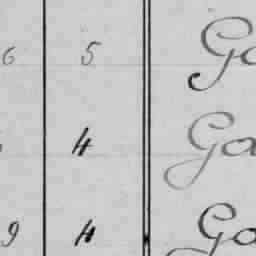 6 5 Ga
4 Ga
9 4 Ga